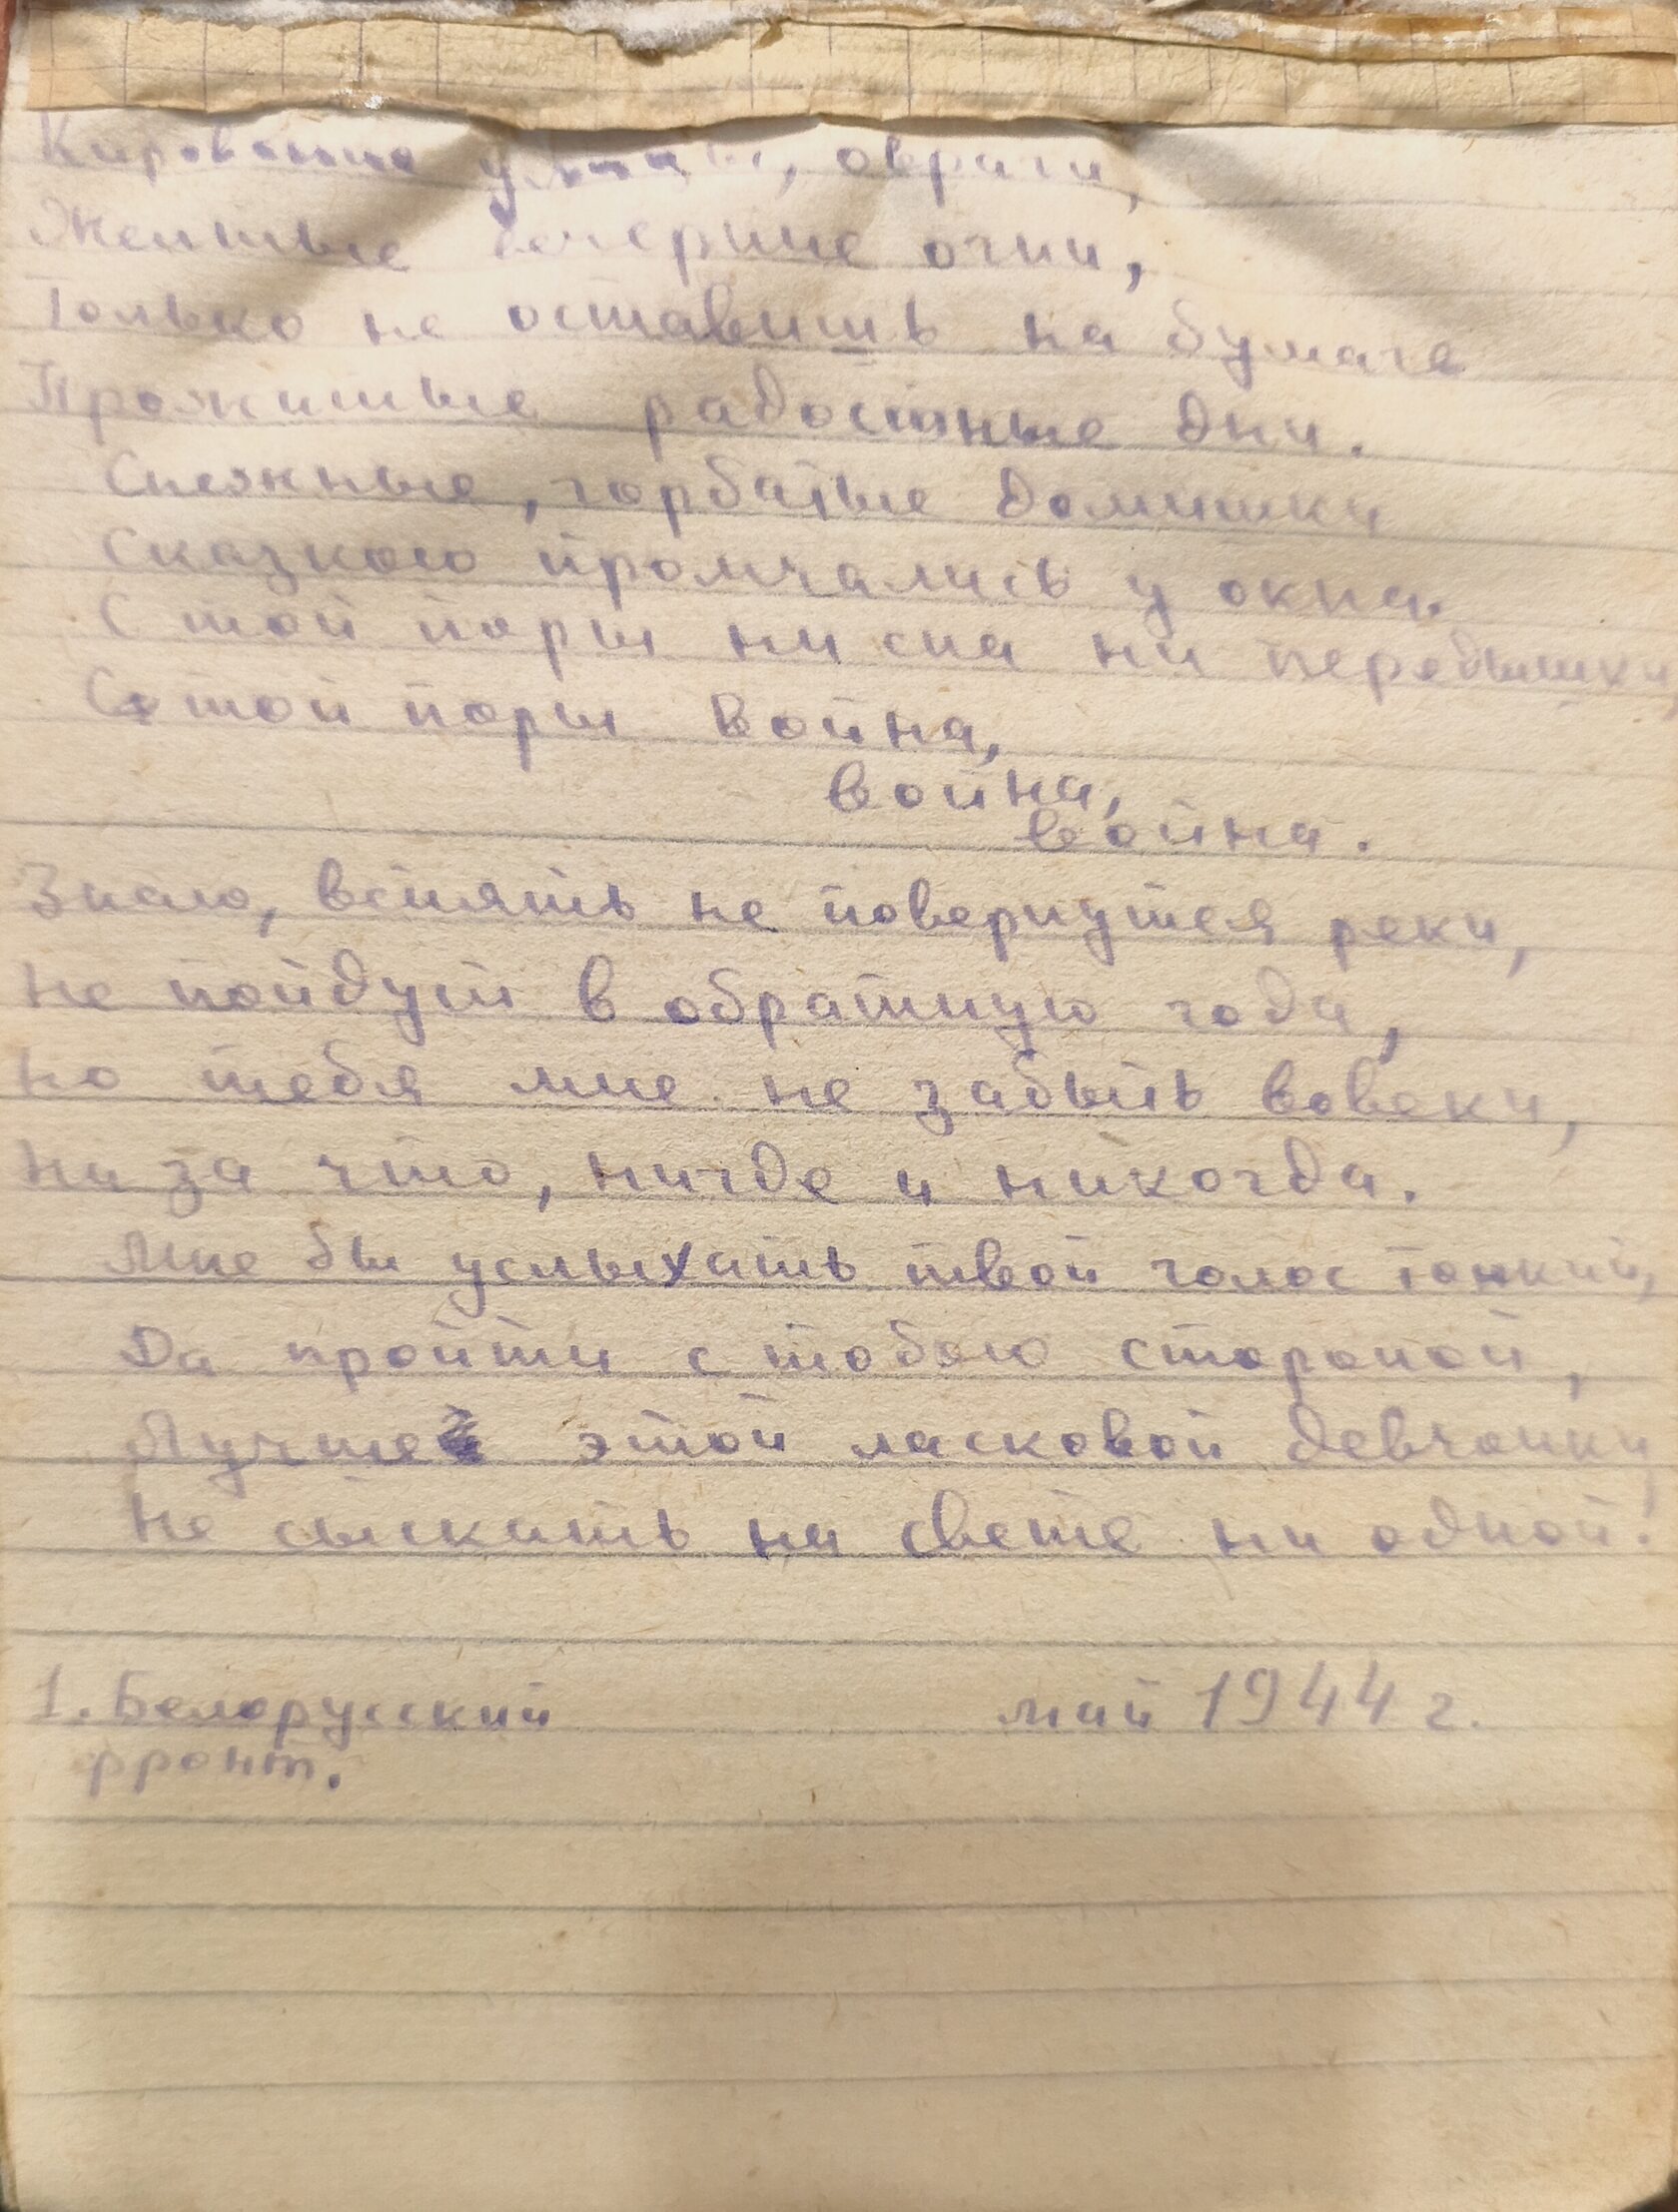 улицы, овраги,
Желтые вечерние огни,
Только не оставить на бумаге
Прожитые радостные дни.
Снежные, горбатые домишки
Сказкою промчались у окна.
С той поры ни сна ни передышки,
С той поры война,
война,
война.
Знаю, вспять не повернутся реки,
не пойдут в обратную года,
но тебя мне не забыть вовеки,
ни за что, нигде и никогда.
Мне бы услыхать твой голос тонкий,
Да пройти с тобою стороной,
Лучше этой ласковой девчонки
Не сыскать на свете ни одной.
1. Белорусский май 1944 г.
фронт.